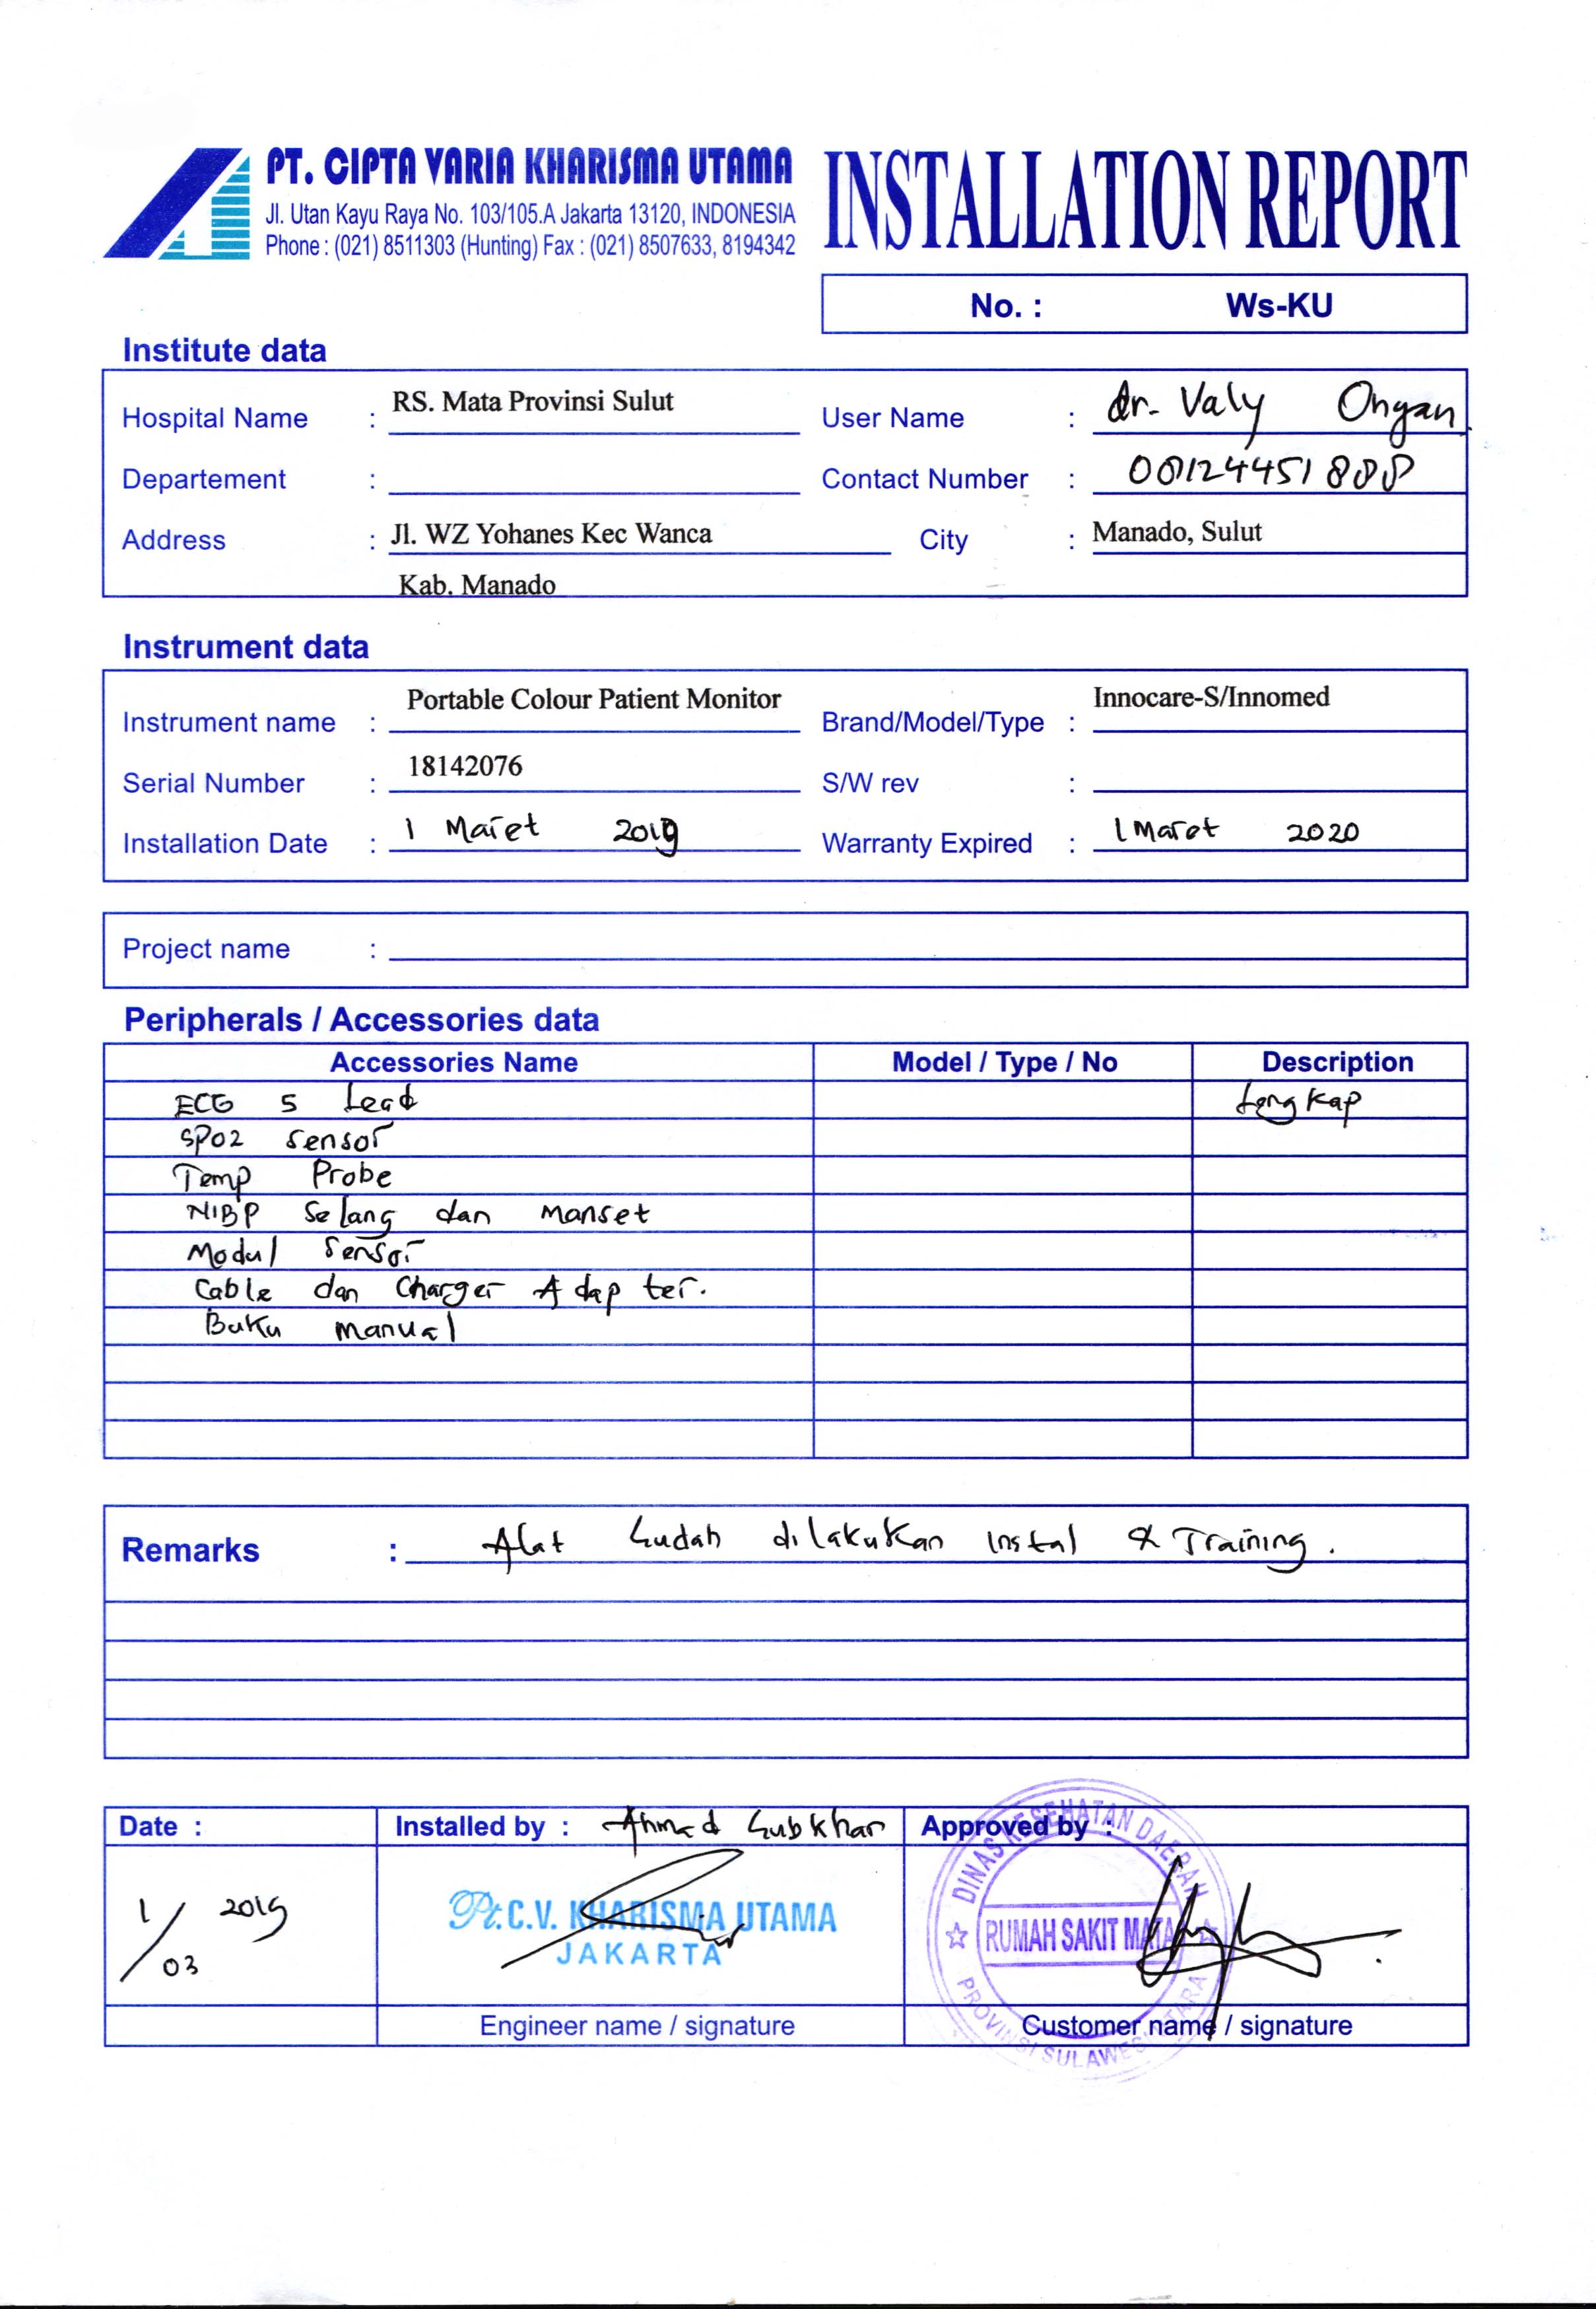 PT. CIPTA VARIA KHARISMA UTAMA
Jl. Utan Kayu Raya No. 103/105.A Jakarta 13120, INDONESIA
Phone : (021) 8511303 (Hunting) Fax : (021) 8507633, 8194342
INSTALLATION REPORT
No. : Ws-KU
Institute data
Hospital Name : RS. Mata Provinsi Sulut User Name : dr. Valy Ongan
Departement : Contact Number :
Address : Jl. WZ Yohanes Kec Wanca City : Manado, Sulut
Kab. Manado
Instrument data
Instrument name : Portable Colour Patient Monitor Brand/Model/Type : Innocare-S/Innomed
Serial Number : 18142076 S/W rev :
Installation Date : 1 Maret 2019 Warranty Expired : 1 Maret 2020
Project name :
Peripherals / Accessories data
Accessories Name Model / Type / No Description
ECG 5 Lead Lengkap
SPO2 sensor
Temp Probe
NIBP Selang dan Manset
Modul Sensor
Cable dan Charger Adapter.
Buku manual
Remarks : Alat Sudah dilakukan instal & Training.
Date : Installed by : Ahmad Subkhan Approved by :
1/03 2019
Pt.C.V. KHARISMA UTAMA
JAKARTA
DINAS KESEHATAN DAERAH
RUMAH SAKIT MATA
PROVINSI SULAWESI UTARA
Engineer name / signature Customer name / signature